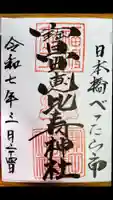 日本橋べったら市
寳田恵比寿神社
令和七年三月二十四日